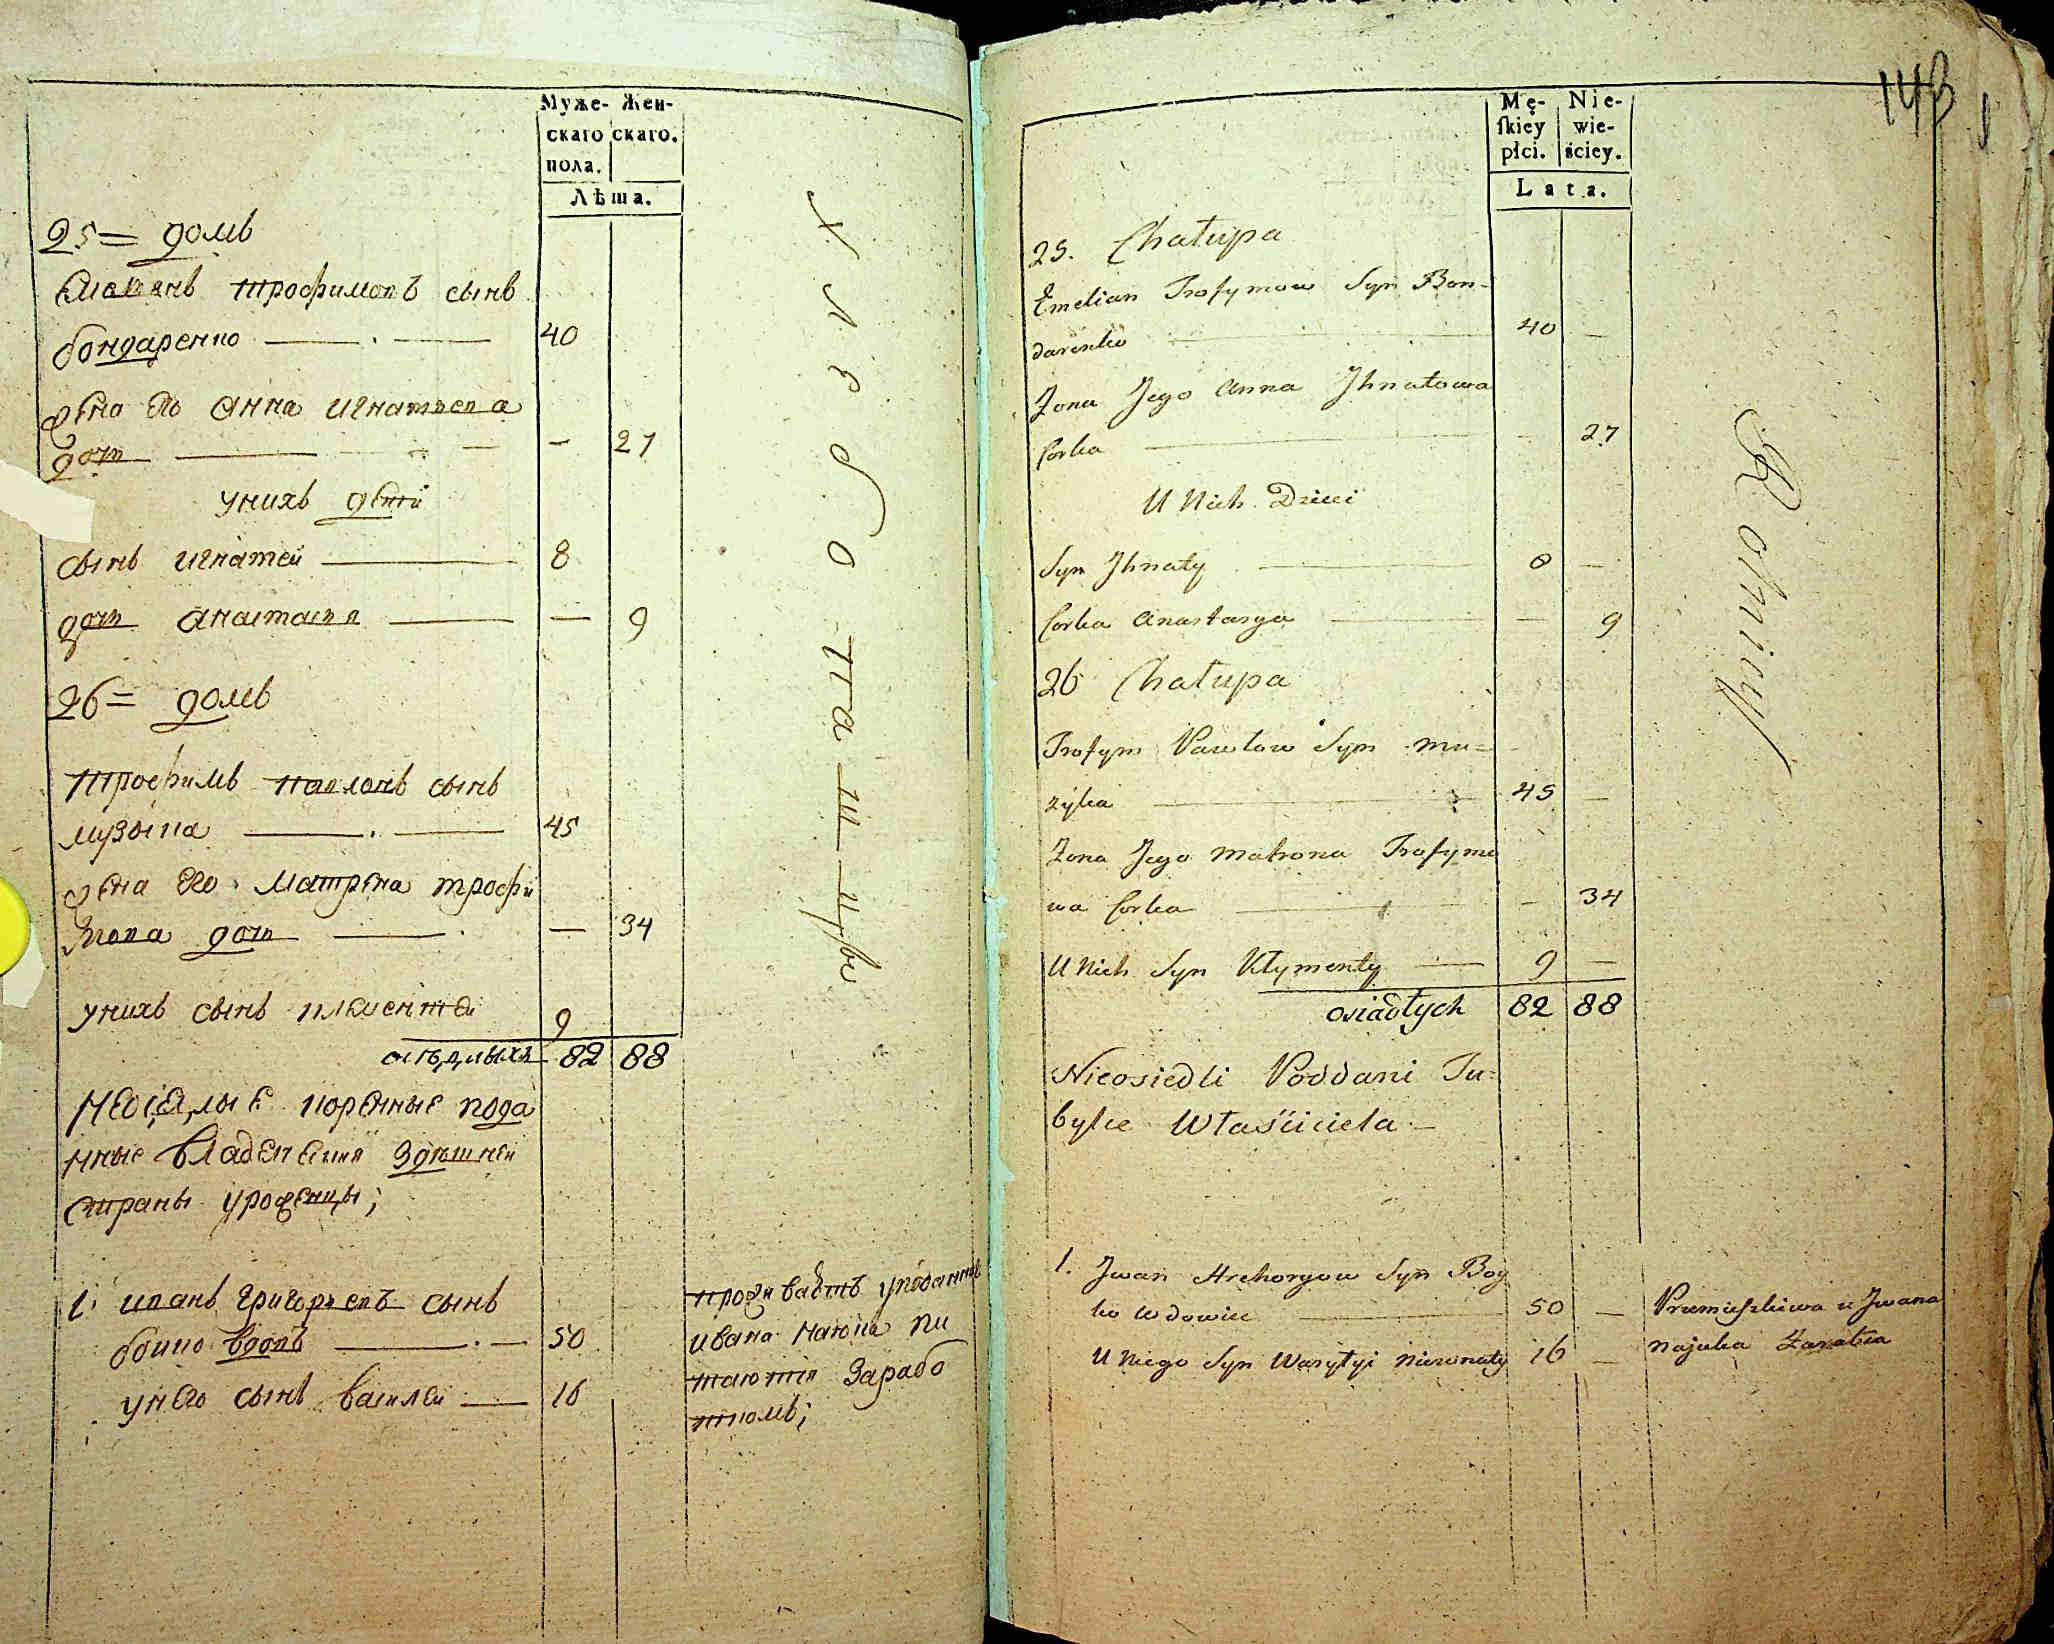 Муже- Жен-
скаго скаго.
пола.
Лѣта.
25 = домъ
Емелянъ трофимовъ сынъ
бондаренко 40
жена его анна игнатьева
дочь — 27
у нихъ дети
сынъ игнатей 8
дочь анастасия — 9
26 = домъ
трофимъ павловъ сынъ
музыка 45
жена его матрена трофи
мова дочь — 34
у нихъ сынъ климентей 9
оседлыхъ 82 88
неоседлые коренные пода
нные владения здешней
страны уроженцы;
1. иванъ григорьевъ сынъ
бойко вдовъ 50
у него сынъ василей 16
хлебопашцы
проживаетъ
ивана
зарабо
ткомъ;
143
Mę- Nie-
skiey wie-
płci. ściey.
Lata.
25. Chałupa
Emelian Trofymow Syn Bon-
darenko 40 —
Zona Jego Anna Jhnatowa
Corka — 27
U Nich Dzieci
Syn Jhnaty 8 —
Corka Anastasya — 9
26 Chałupa
Trofym Pawłow Syn Mu=
zyka 45 —
Zona Jego Matrona Trofymo
wa Corka — 34
U Nich Syn Kłymenty 9 —
osiadłych 82 88
Nieosiedli Poddani Tu=
bylce Właściciela —
1. Jwan Hrehoryow Syn Boy
ko Wdowiec 50 —
U Niego Syn Wasylyi Nieżonaty 16 —
Rolnicy
u Jwana
Najuka